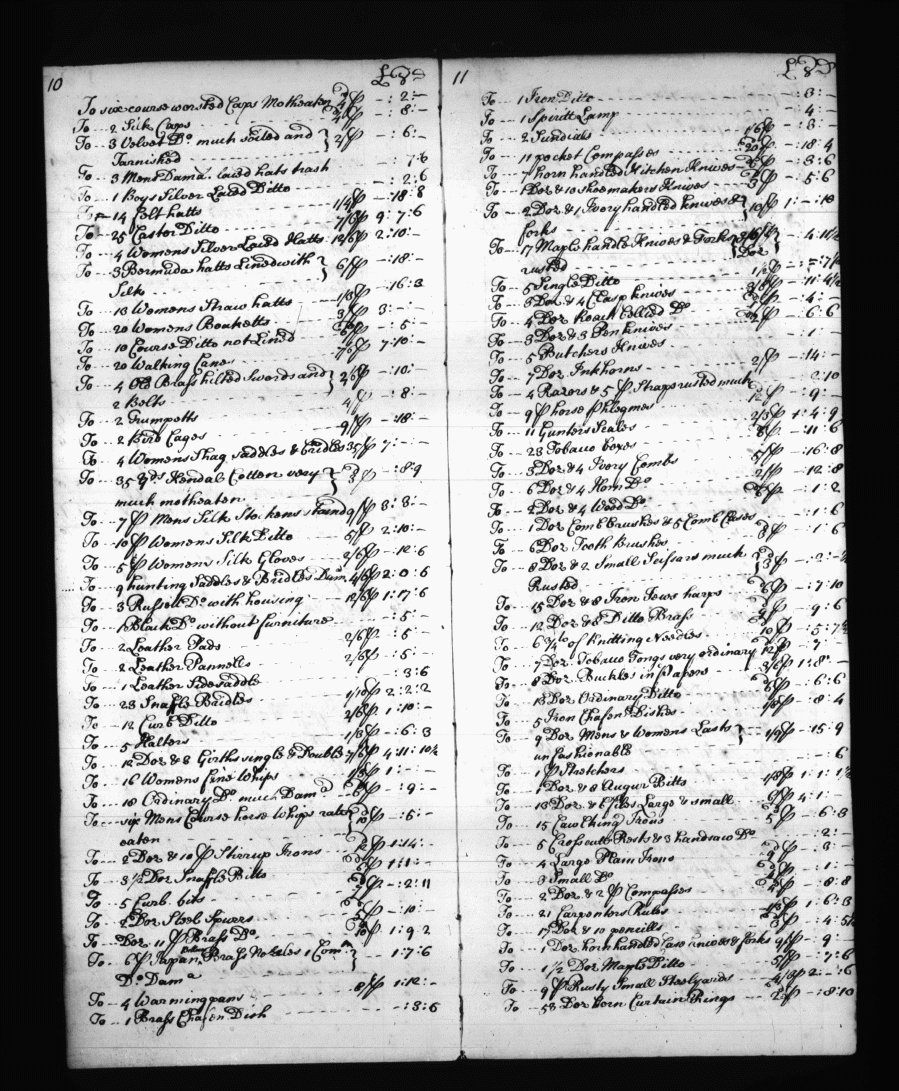 10 £ s d
To six course worsted Caps Motheaten 4/P - : 2 : -
To 2 Silk Caps 4/P - : 8 : -
To 3 Velvet Do. much soiled and 2/P - : 6 : -
Tarnished
To 3 Mens Dama. laced hats trash - : 7 : 6
To 1 Boys Silver Laced Ditto - : 2 : 6
To 14 Felt hatts 1/4P - 18 : 8
To 25 Castor Ditto 7/6P 9 : 7 : 6
To 4 Womens Silver Laced Hatts 12/6P 2 : 10 : -
To 3 Bermuda hatts Lined with 6/P - : 18 : -
Silk
To 13 Womens Straw hatts 1/3P - 16 : 3
To 20 Womens Bonketts 3/P 3 : - : -
To 10 Course Ditto not Lined 6P - : 5 : -
To 20 Walking Canes 7/6P 7 : 10 : -
To 4 Old Brass hilted Swords and 2/6P - : 10 : -
2 Belts
To 2 Trumpetts 4/P - : 8 : -
To 2 Bird Cages 9/P - 18 : -
To 4 Womens Shag Saddles & Bridles 35/P 7 : - : -
To 35 Yds. Kendal Cotton very 3P - : 8 : 9
much motheaten
To 7 P Mens Silk Stockens staind 9/P 3 : 3 : -
To 10 P Womens Silk Ditto 5/P 2 : 10 : -
To 5 P Womens Silk Gloves 2/6P - 12 : 6
To 9 hunting Saddles & Bridles Dam. 4/6P 2 : 0 : 6
To 3 Russett Do. with housing 12/6P 1 : 17 : 6
To 1 Black Do. without furniture - : 5 : -
To 2 Leather Pads 2/6P : 5 : -
To 2 Leather Pannells 2/6P - : 5 : -
To 1 Leather Sidesaddle - : 3 : 6
To 23 Snaffle Bridles 1/10P 2 : 2 : 2
To 12 Curb Ditto 2/6P 1 : 10 : -
To 5 Halters 1/3P - : 6 : 3
To 12 Doz & 3 Girths single & Double 7/6P 4 : 11 : 10½
To 16 Womens fine Whips 1/3P 1 : - : -
To 18 Ordinary Do. much Damd. 6P - : 9 : -
To six Mens Course horse Whips ratt 10P - : 5 : -
eaten
To 2 Doz & 10 P Stirrup Irons 12P 1 : 14 : -
To 3½ Doz Snaffle Bitts 6P 1 : 1 : -
To 5 Curb bits 7P - : 2 : 11
To 2 Doz Steel Spurs 5P - : 10 : -
To Doz 11 P Brass Do. 1 : 9 : 2
To 6 P Japan Brass Nozeles 1 Comn. 1 : 7 : 6
Do. Dama
To 4 Warmingpans 8/P 1 : 12 : -
To 1 Brass Chafen Dish - : 3 : 6
11 £ s D
To 1 Iron Ditto : 3 : -
To 1 Spiritt Lamp 4 : -
To 2 Sundials 1/6P - : 3 : -
To 11 pocket Compasses 20P - 18 : 4
To 7 horn handled Kitchen Knives 6P - : 3 : 6
To 1 Doz & 10 shoemakers Knives 3P - : 5 : 6
To 2 Doz & 1 Ivory handled knives & 10/P 1 : - : 10
forks
To 17 Maple handle Knives & Forks 3/6P - : 4 : 11½
rusted Doz
To 5 Single Ditto 1½P - : - : 7½
To 3 Doz & 4 Clasp knives - 11 : 4½
To 4 Doz Roach bellied Do. - : 4 : -
To 3 Doz & 3 Penknives - : 6 : 6
To 5 Butchers Knives - : 1 : -
To 7 Doz Inkhorns 2/P - 14 : -
To 4 Razors & 5 P Straps rusted much : 2 : 10
To 9 P horse Phlegmes 12P - : 9 : -
To 11 Gunters Scales 2/3P 1 : 4 : 9
To 23 Tobacco boxes 6P - 11 : 6
To 3 Doz & 4 Ivory Combs 5/P - 16 : 8
To 6 Doz & 4 Horn Do. 2/P - 12 : 8
To 2 Doz & 4 Wood Do. 6P - : 1 : 2
To 1 Doz Comb brushes & 5 Comb Cases - : 1 : 6
To 6 Doz Tooth Brushes 3P - : 1 : 6
To 8 Doz & 2 Small Scissars much 3P - : 2 : -½
Rusted
To 15 Doz & 8 Iron Jews harps 6P - : 7 : 10
To 12 Doz & 8 Ditto Brass 9P : 9 : 6
To 6¾ lb of Knitting Needles 10P - : 5 : 7½
To 7 Doz Tobacco Tongs very ordinary 12P - 7 : -
To 8 Doz Buckles in Papers 3/6P 1 : 8 : -
To 13 Doz Ordinary Ditto 6P - : 6 : 6
To 5 Iron Chafen Dishes 1/8P - : 8 : 4
To 9 Doz Mens & Womens Lasts 1/9P - 15 : 9
unfashionable
To 1 P Stretchers - : 6
To 1 Doz & 8 Augur Bitts 1 : 1 : 1½
To 13 Doz & 6 Files Large & small 6P 4 : 1 : -
To 15 Cawlking Irons 5P - : 6 : 3
To 5 Crosscutt Rests & 3 handsaw Do. - : 2 : -
To 4 Large Plain Irons 9P - : 3 : -
To 3 Small Do. 4P - : 1 : -
To 2 Doz & 2 P Compasses - : 8 : 8
To 21 Carpenters Rules 1/3P 1 : 6 : 3
To 17 Doz & 10 pencills 3P - : 4 : 5½
To 1 Doz horn handled Case knives & forks 9/P - 9 : -
To 1½ Doz Maple Ditto 5/P - : 7 : 6
To 9 P Rusty Small Steelyards 4/6P 2 : - : 6
To 53 Doz horn Curtain Rings 2P - : 8 : 10